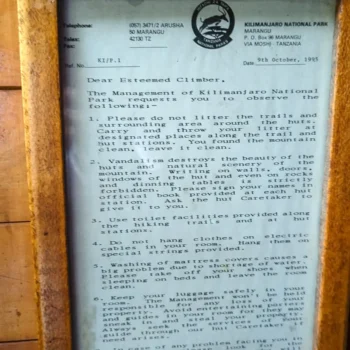 Telephone: (057) 3471/2 ARUSHA
50 MARANGU
Telex: 42130 TZ
Fax:
KILIMANJARO NATIONAL PARK
MARANGU
P. O. Box 96 MARANGU
VIA MOSHI - TANZANIA
Ref. No. KI/P.1
Date 9th October, 1995
Dear Esteemed Climber,
The Management of Kilimanjaro National
Park requests you to observe the
following:-
1. Please do not litter the trails and
surrounding area around the huts.
Carry and throw your litter at
designated places along the trail and
hut stations. You found the mountain
clean, leave it clean.
2. Vandalism destroys the beauty of the
huts and natural scenery of the
mountain. Writing on walls, doors,
windows of the hut and even on rocks
and dinning tables is strictly
forbidden. Please sign your names in
official book provided at each hut
station. Ask the hut Caretaker to
give it to you.
3. Use toilet facilities provided along
the hiking trails and at hut
stations.
4. Do not hang clothes on electric
cables in your room. Hang them on
special strings provided.
5. Washing of mattress covers causes a
big problem due to shortage of water.
Please take off your shoes when
sleeping on beds and leave the room
clean.
6. Keep your luggage safely in your
room. The Management won't be held
responsible for any loss of your
property. Avoid entertaining porters
and guides in your room for they may
sneak in and steal your property.
Always seek the services of your
guide through our hut Caretaker
need arises.
In case of any problem facing you in